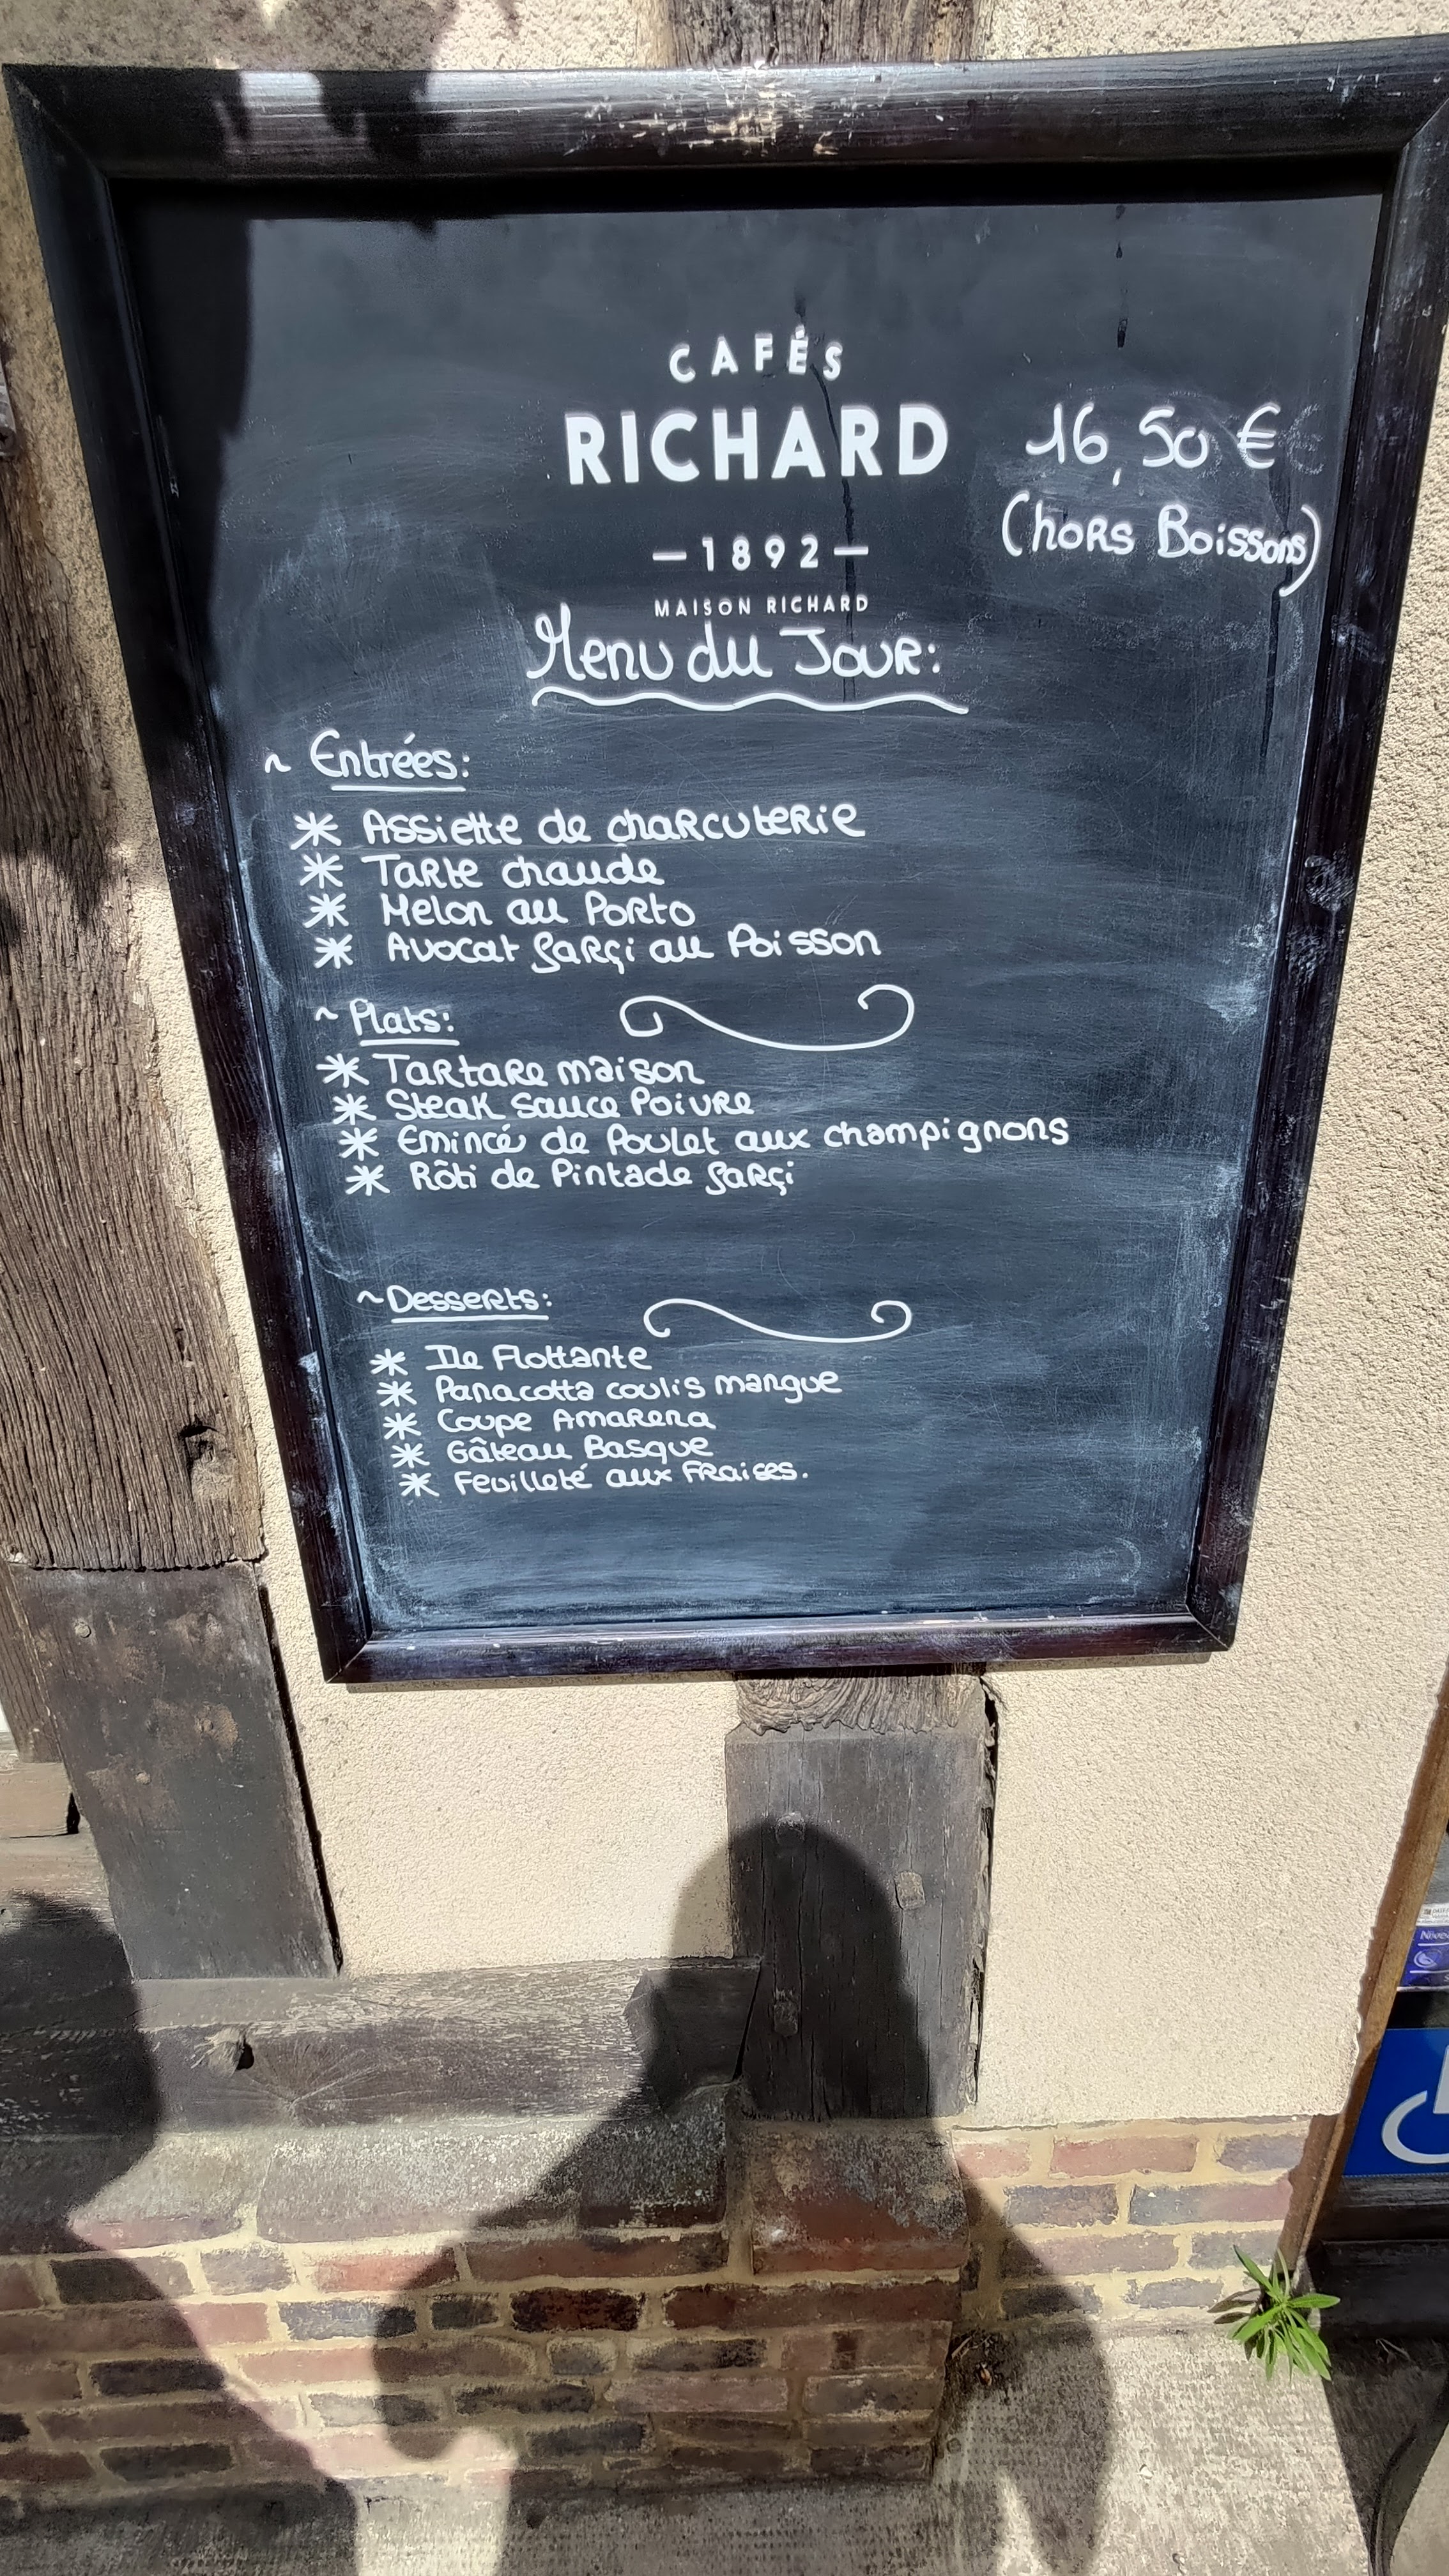 CAFÉS
RICHARD
16,50 €
(hors Boissons)
—1892—
MAISON RICHARD
Menu du Jour:
~ Entrées:
* Assiette de charcuterie
* Tarte chaude
* Melon au Porto
* Avocat farçi au Poisson
~ Plats:
* Tartare maison
* Steak sauce Poivre
* Emincé de Poulet aux champignons
* Rôti de Pintade farçi
~ Desserts:
* Ile Flottante
* Panacotta coulis mangue
* Coupe Amarena
* Gâteau Basque
* Feuilleté aux Fraises.